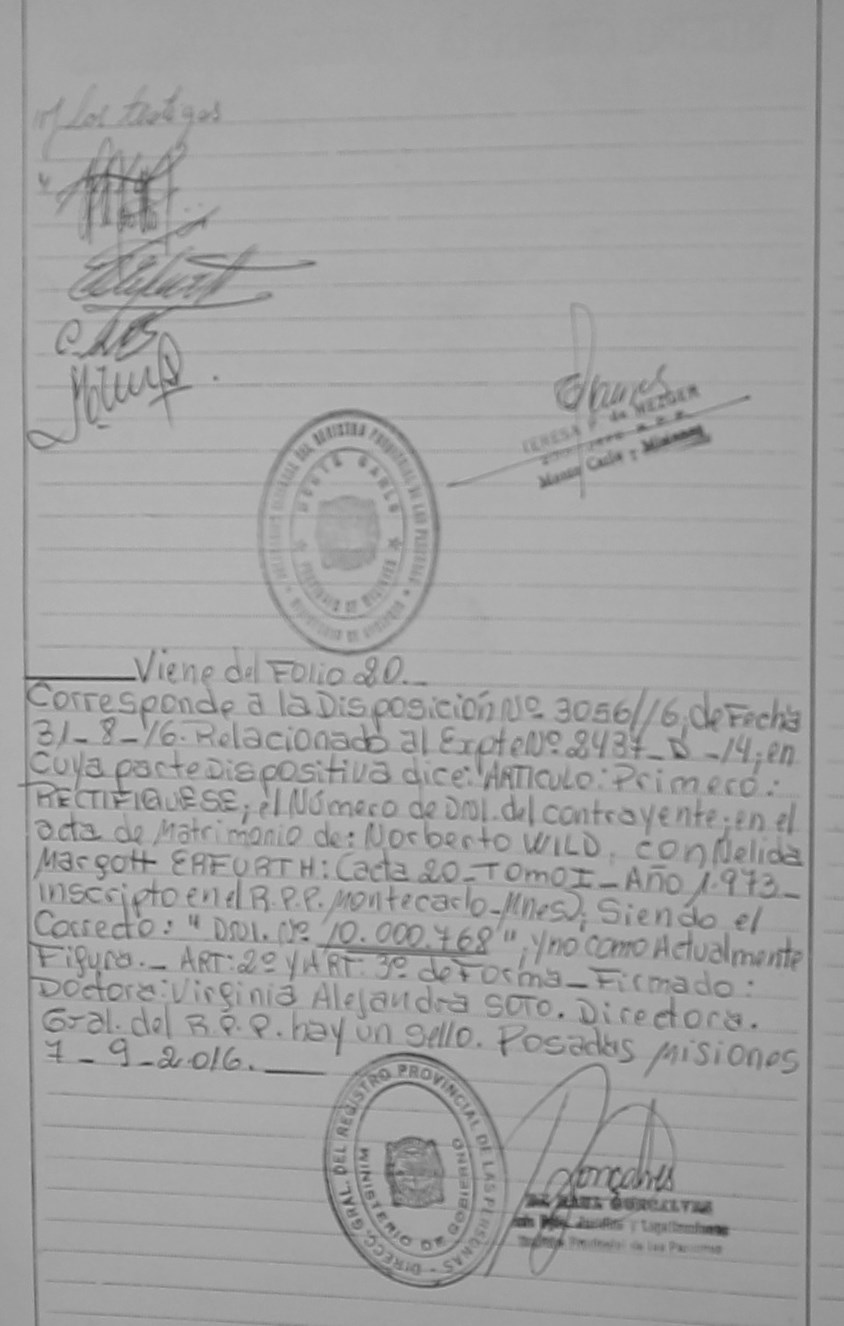 Los testigos
TERESA P. de MEZGER
Monte Carlo - Misiones
DIRECCION GENERAL DEL REGISTRO PROVINCIAL DE LAS PERSONAS
MONTE CARLO
PROVINCIA DE MISIONES
MINISTERIO DE GOBIERNO
Viene del Folio 20._
Corresponde a la Disposición Nº 3056/16, de Fecha
31_8_16. Relacionado al Expte Nº 2437_D_14; en
Cuya parte Dispositiva dice: "ARTICULO: Primero:
RECTIFIQUESE; el Número de DNI. del contrayente; en el
acta de Matrimonio de: Norberto WILD, con Nelida
Margott ERFURTH: (acta 20_TOMO I_Año 1.973_
inscripto en el R.P.P. Montecarlo_Mnes); Siendo el
Correcto: " DNI. Nº 10.000.768 "; y no como Actualmente
Figura._ ART: 2º y ART: 3º de Forma_Firmado:
Doctora: Virginia Alejandra SOTO. Directora.
Gral. del R.P.P. hay un sello. Posadas Misiones
7_9_2016.
DIRECC. GRAL. DEL REGISTRO PROVINCIAL DE LAS PERSONAS
MINISTERIO DE GOBIERNO
Gonçalves
RAUL GONCALVES
Provincial de las Personas